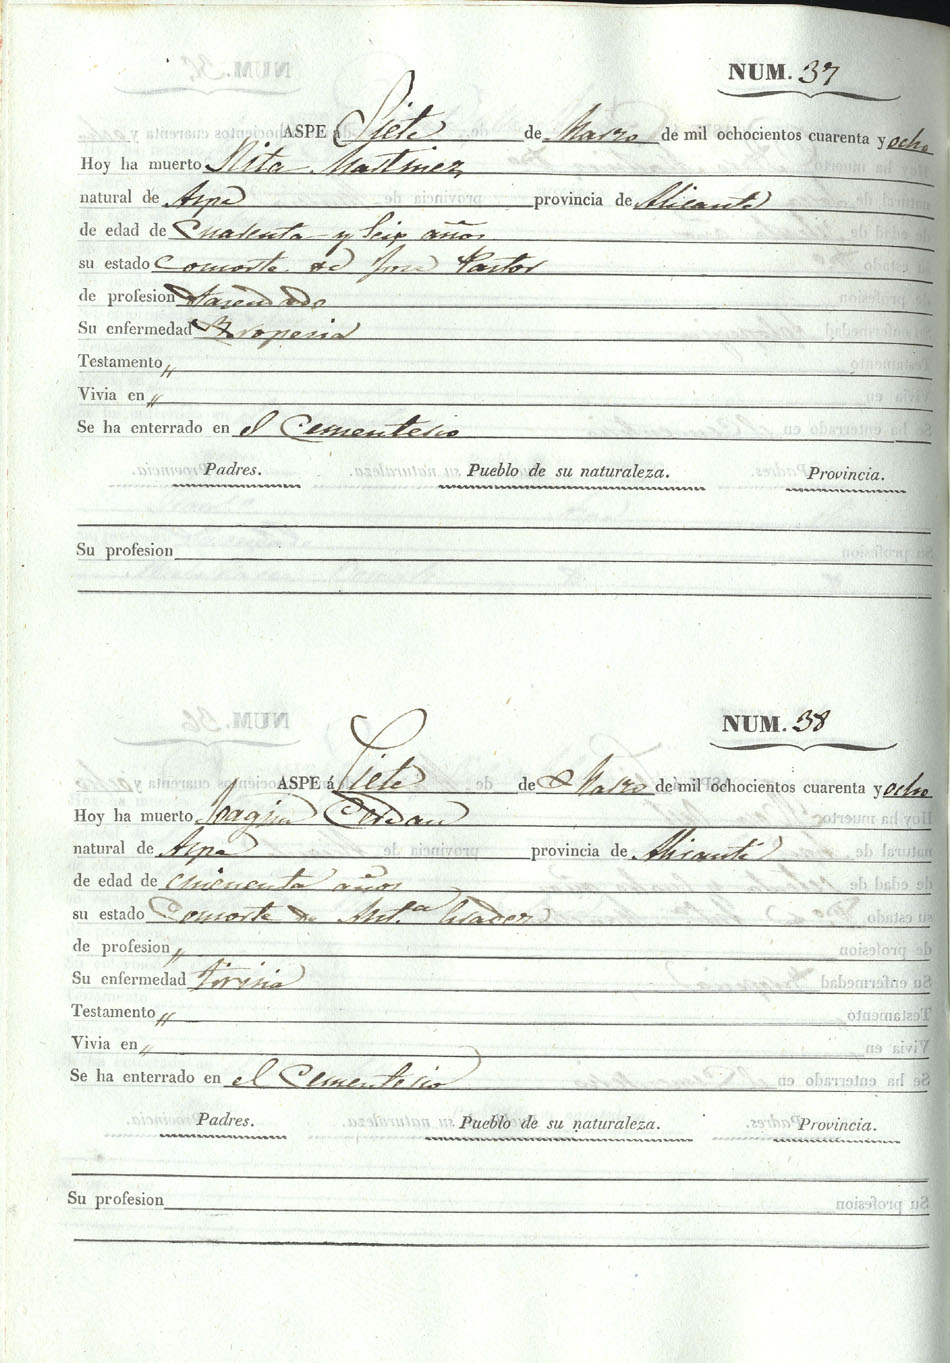 NUM. 37
ASPE á Siete de Marzo de mil ochocientos cuarenta y ocho
Hoy ha muerto Rita Martinez
natural de Aspe provincia de Alicante
de edad de Cuarenta y Seis años
su estado Consorte de Jose Pastor
de profesion
Su enfermedad Ydropesia
Testamento "
Vivia en "
Se ha enterrado en el Cementerio
Padres. Pueblo de su naturaleza. Provincia.
Su profesion
NUM. 38
ASPE á Siete de Marzo de mil ochocientos cuarenta y ocho
Hoy ha muerto Joaqna Cerdan
natural de Aspe provincia de Alicante
de edad de cincuenta años
su estado Consorte de Ant.
de profesion "
Su enfermedad
Testamento "
Vivia en "
Se ha enterrado en el Cementerio
Padres. Pueblo de su naturaleza. Provincia.
Su profesion